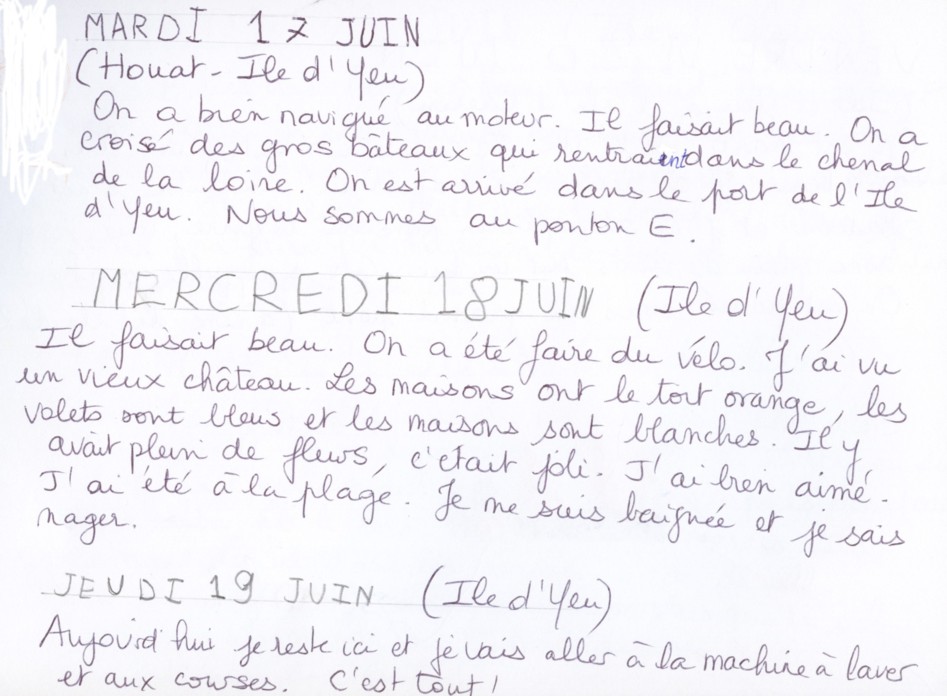 MARDI 17 JUIN
(Houat - Ile d'Yeu)
On a bien navigué au moteur. Il faisait beau. On a
croisé des gros bâteaux qui rentraient dans le chenal
de la loire. On est arrivé dans le port de l'Ile
d'Yeu. Nous sommes au ponton E.
MERCREDI 18 JUIN (Ile d'Yeu)
Il faisait beau. On a été faire du vélo. J'ai vu
un vieux château. Les maisons ont le toit orange, les
volets sont bleus et les maisons sont blanches. Il y
avait plein de fleurs, c'était joli. J'ai bien aimé.
J'ai été à la plage. Je me suis baignée et je sais
nager.
JEUDI 19 JUIN (Ile d'Yeu)
Aujourd'hui je reste ici et je vais aller à la machine à laver
et aux courses. C'est tout !